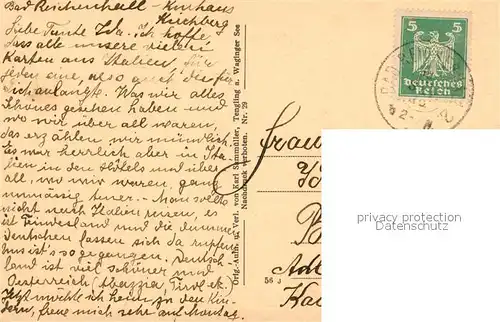 Bad Reichenhall - Kurhaus
Kirchberg
Liebe Tante Ida. Ich hoffe
dass alle unsere vielen
Karten aus Italien, für
jeden eine, also auch die für
Dich, anlangt. Was wir alles
Schönes gesehen haben und
wo wir über all waren,
das erzählen wir mündlich.
Es war herrlich aber in Ita-
lien in den Hôtels und über
all, wo wir waren, ganz
unmässig teuer. - Man sollte
nicht nach Italien reisen, es
ist Feindesland und die dummen
Deutschen lassen sich da rupfen
uns ist's so gegangen. Deutsch
land ist viel schöner und
Oesterreich (Abazzia, Tirol etc.
Jetzt möchte ich heim zu den Kin-
dern, freue mich sehr auf Montag.
Orig.-Aufn. u. Verl. von Karl Sammüller, Tengling a. Waginger See
Nachdruck verboten. Nr. 29
5 5
Deutsches
Reich
BAD
Frau
56 J
privacy protection
Datenschutz